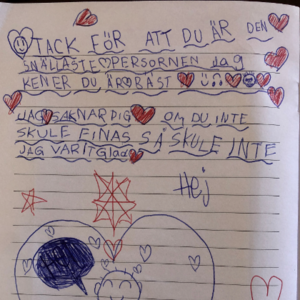 TACK FÖR ATT DU ÄR DEN
SNÄLLASTE PERSORNEN JAG
KENER DU ÄR BÄST
JAG SAKNAR DIG OM DU INTE
SKULE FINAS SÅ SKULE INTE
JAG VARIT Glad
Hej